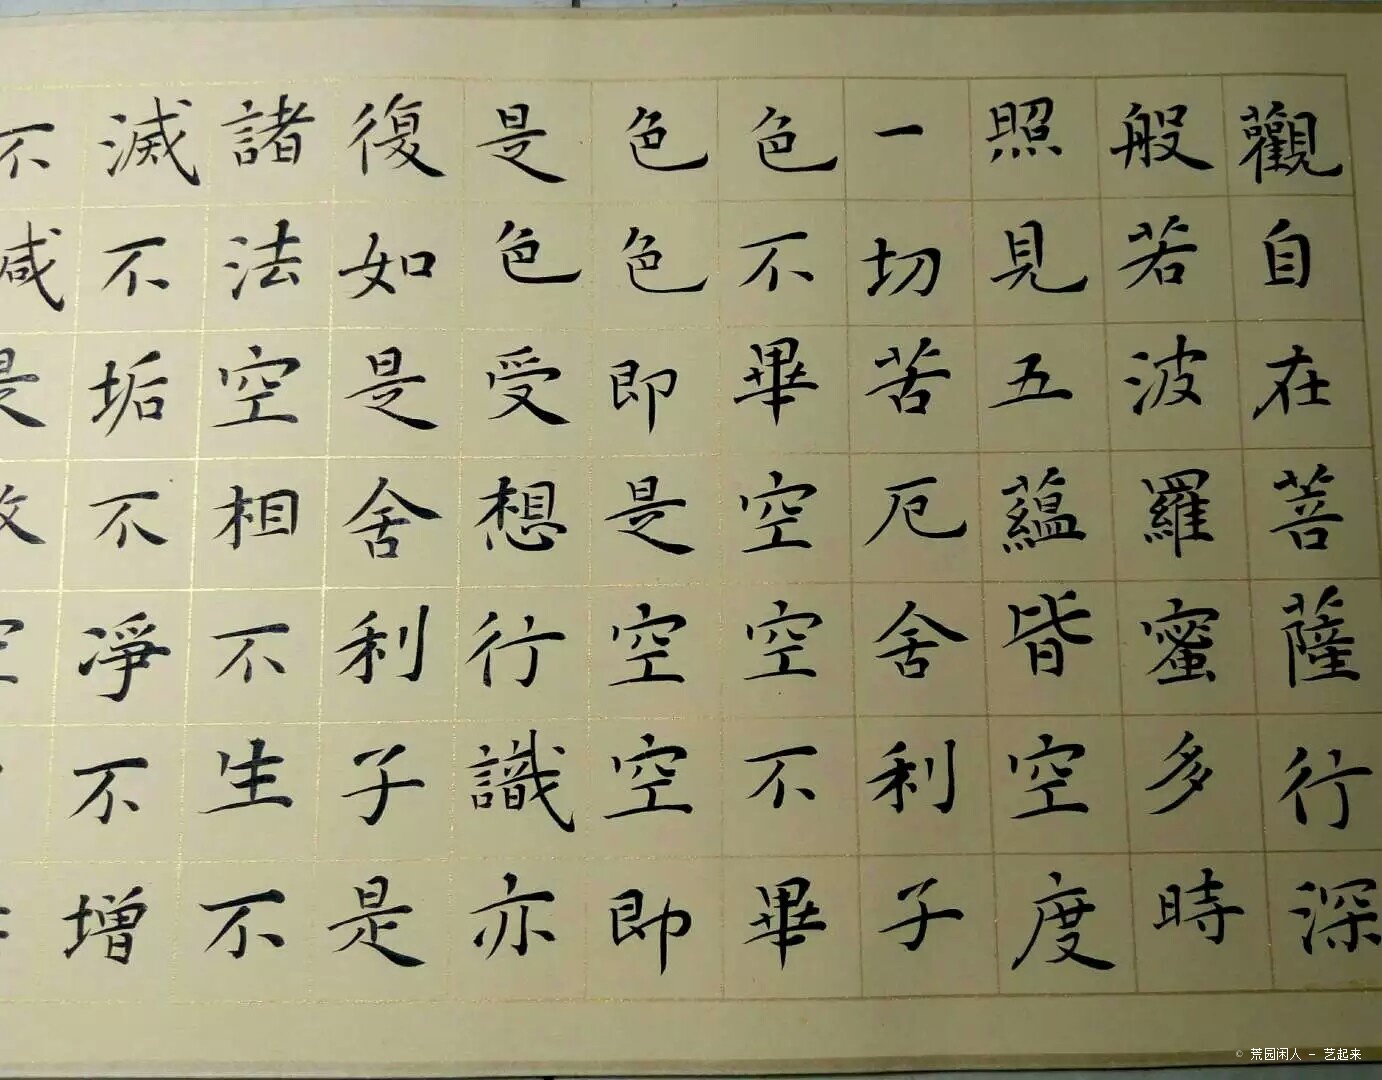 觀自在菩薩行深
般若波羅蜜多時
照見五蘊皆空度
一切苦厄舍利子
色不畢空空不畢
色色即是空空即
是色受想行識亦
復如是舍利子是
諸法空相不生不
滅不垢不淨不增
不減是
© 荒园闲人 - 艺起来